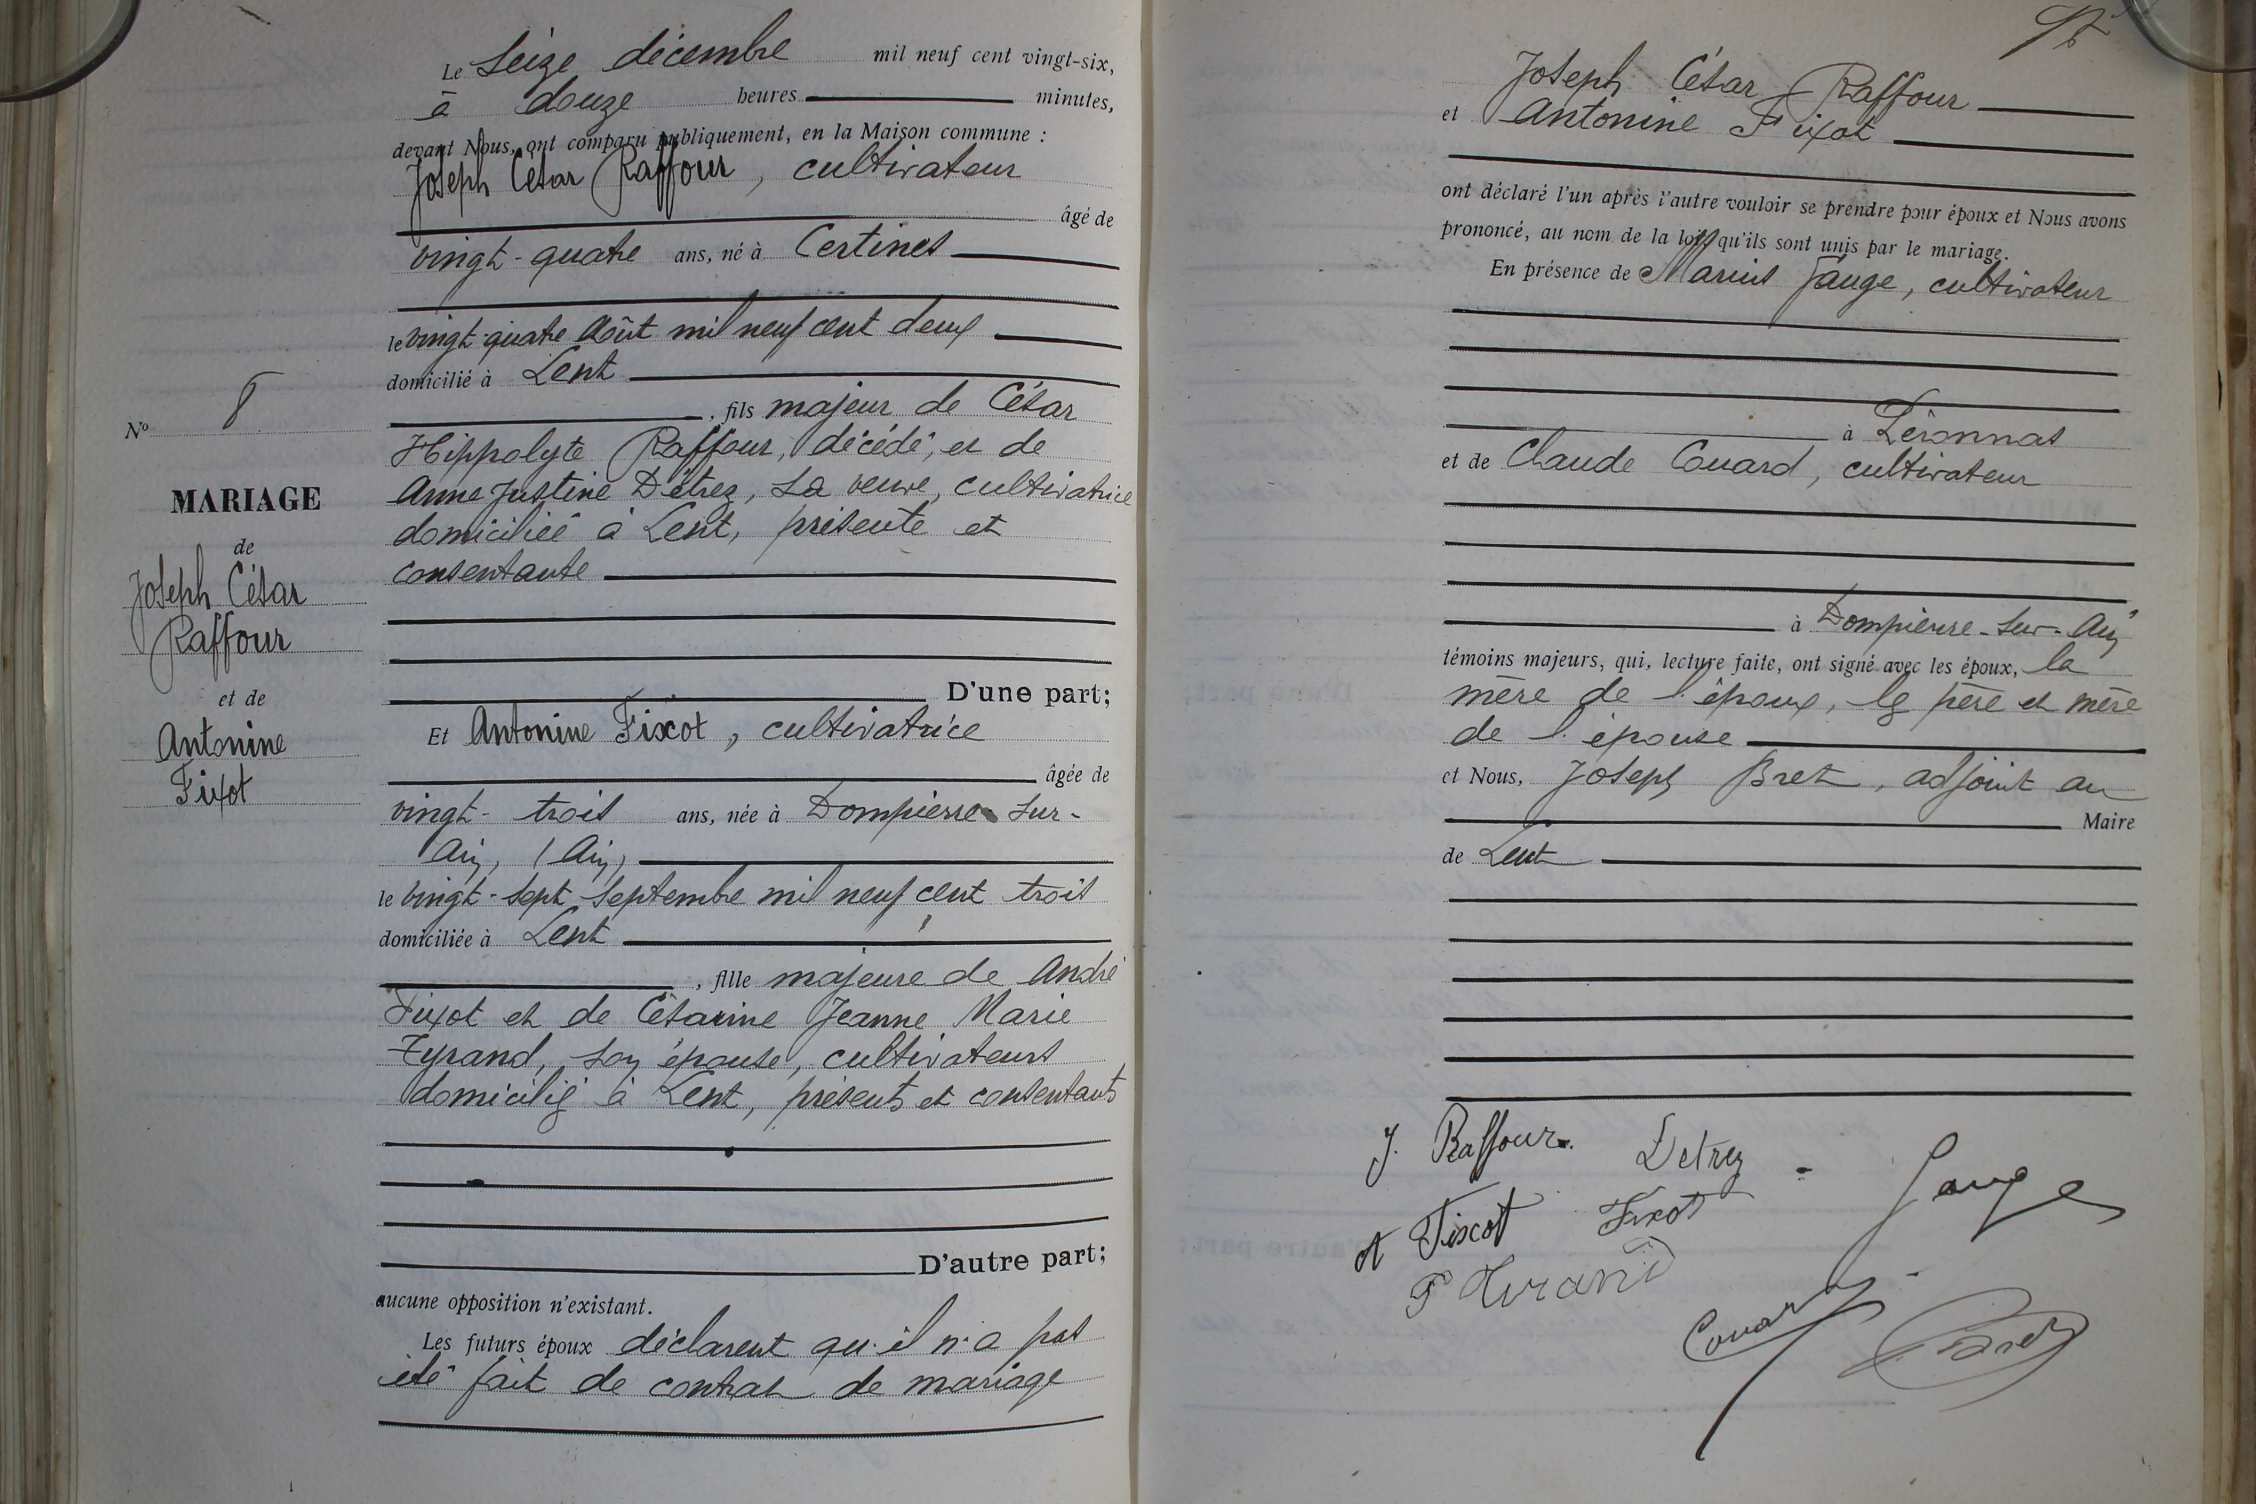 Le Seize décembre mil neuf cent vingt-six,
à douze heures minutes,
devant Nous, ont comparu publiquement, en la Maison commune :
Joseph César Raffour, cultivateur
âgé de
vingt-quatre ans, né à Certines
le vingt-quatre Août mil neuf cent deux
domicilié à Lent
, fils majeur de César
Hippolyte Raffour, décédé, et de
Anne Justine Détrez, sa veuve, cultivatrice
domiciliée à Lent, présente et
consentante
D'une part;
Et Antonine Fixot, cultivatrice
âgée de
vingt-trois ans, née à Dompierre sur-
Ain, (Ain)
le vingt-sept Septembre mil neuf cent trois
domiciliée à Lent
, fille majeure de André
Fixot et de Césarine Jeanne Marie
Tyrand, son épouse, cultivateurs
domiciliés à Lent, présents et consentants
D'autre part;
aucune opposition n'existant.
Les futurs époux déclarent qu'il n'a pas
été fait de contrat de mariage
No 8
MARIAGE
de
Joseph César
Raffour
et de
Antonine
Fixot
Joseph César Raffour
et Antonine Fixot
ont déclaré l'un après l'autre vouloir se prendre pour époux et Nous avons
prononcé, au nom de la loi, qu'ils sont unis par le mariage.
En présence de Marius Gauge, cultivateur
à Péronnas
et de Claude Couard, cultivateur
à Dompierre-sur-Ain
témoins majeurs, qui, lecture faite, ont signé avec les époux, la
mère de l'époux, les père et mère
de l'épouse
et Nous, Joseph Bret, adjoint au
Maire
de Lent
J. Raffour. Detrez
Gauge
A Fixot Fixot
Couard
Bret